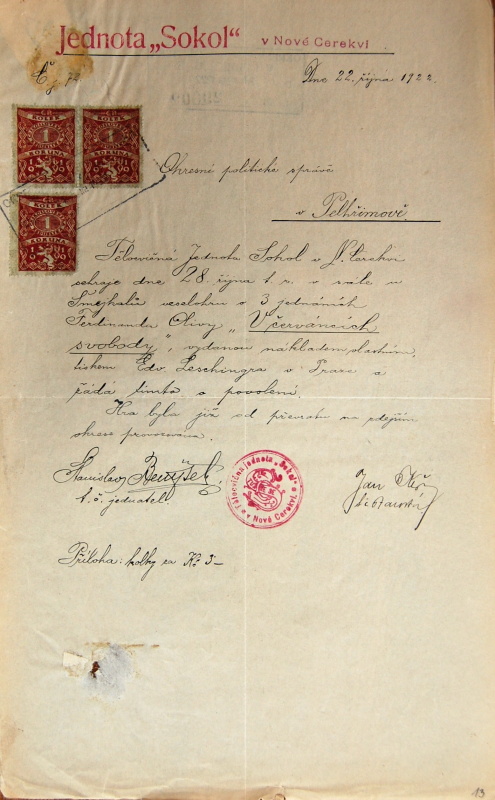 Jednota „Sokol“ v Nové Cerekvi
Dne 22. října 1922.
Č. j.
Č.S.
KOLEK
1
KORUNA
Č.S.
KOLEK
1
KORUNA
Č.S.
KOLEK
1
KORUNA
Okresní politické správě
v Pelhřimově
Tělocvičná Jednota Sokol v N. Cerekvi
sehraje dne 28. října t. r. v sále u
Smejkalů veselohru o 3 jednáních
Ferdinanda Olivy „V červáncích
svobody“, vydanou nákladem vlastním,
tiskem Edv. Leschingra v Praze a
žádá tímto o povolení.
Hra byla již od převratu na zdejším
okrese provozována.
Stanislav
t. č. jednatel
Tělocvičná jednota „Sokol“ v Nové Cerekvi
Jan
starosta
Příloha: kolky za Kč 3-
13